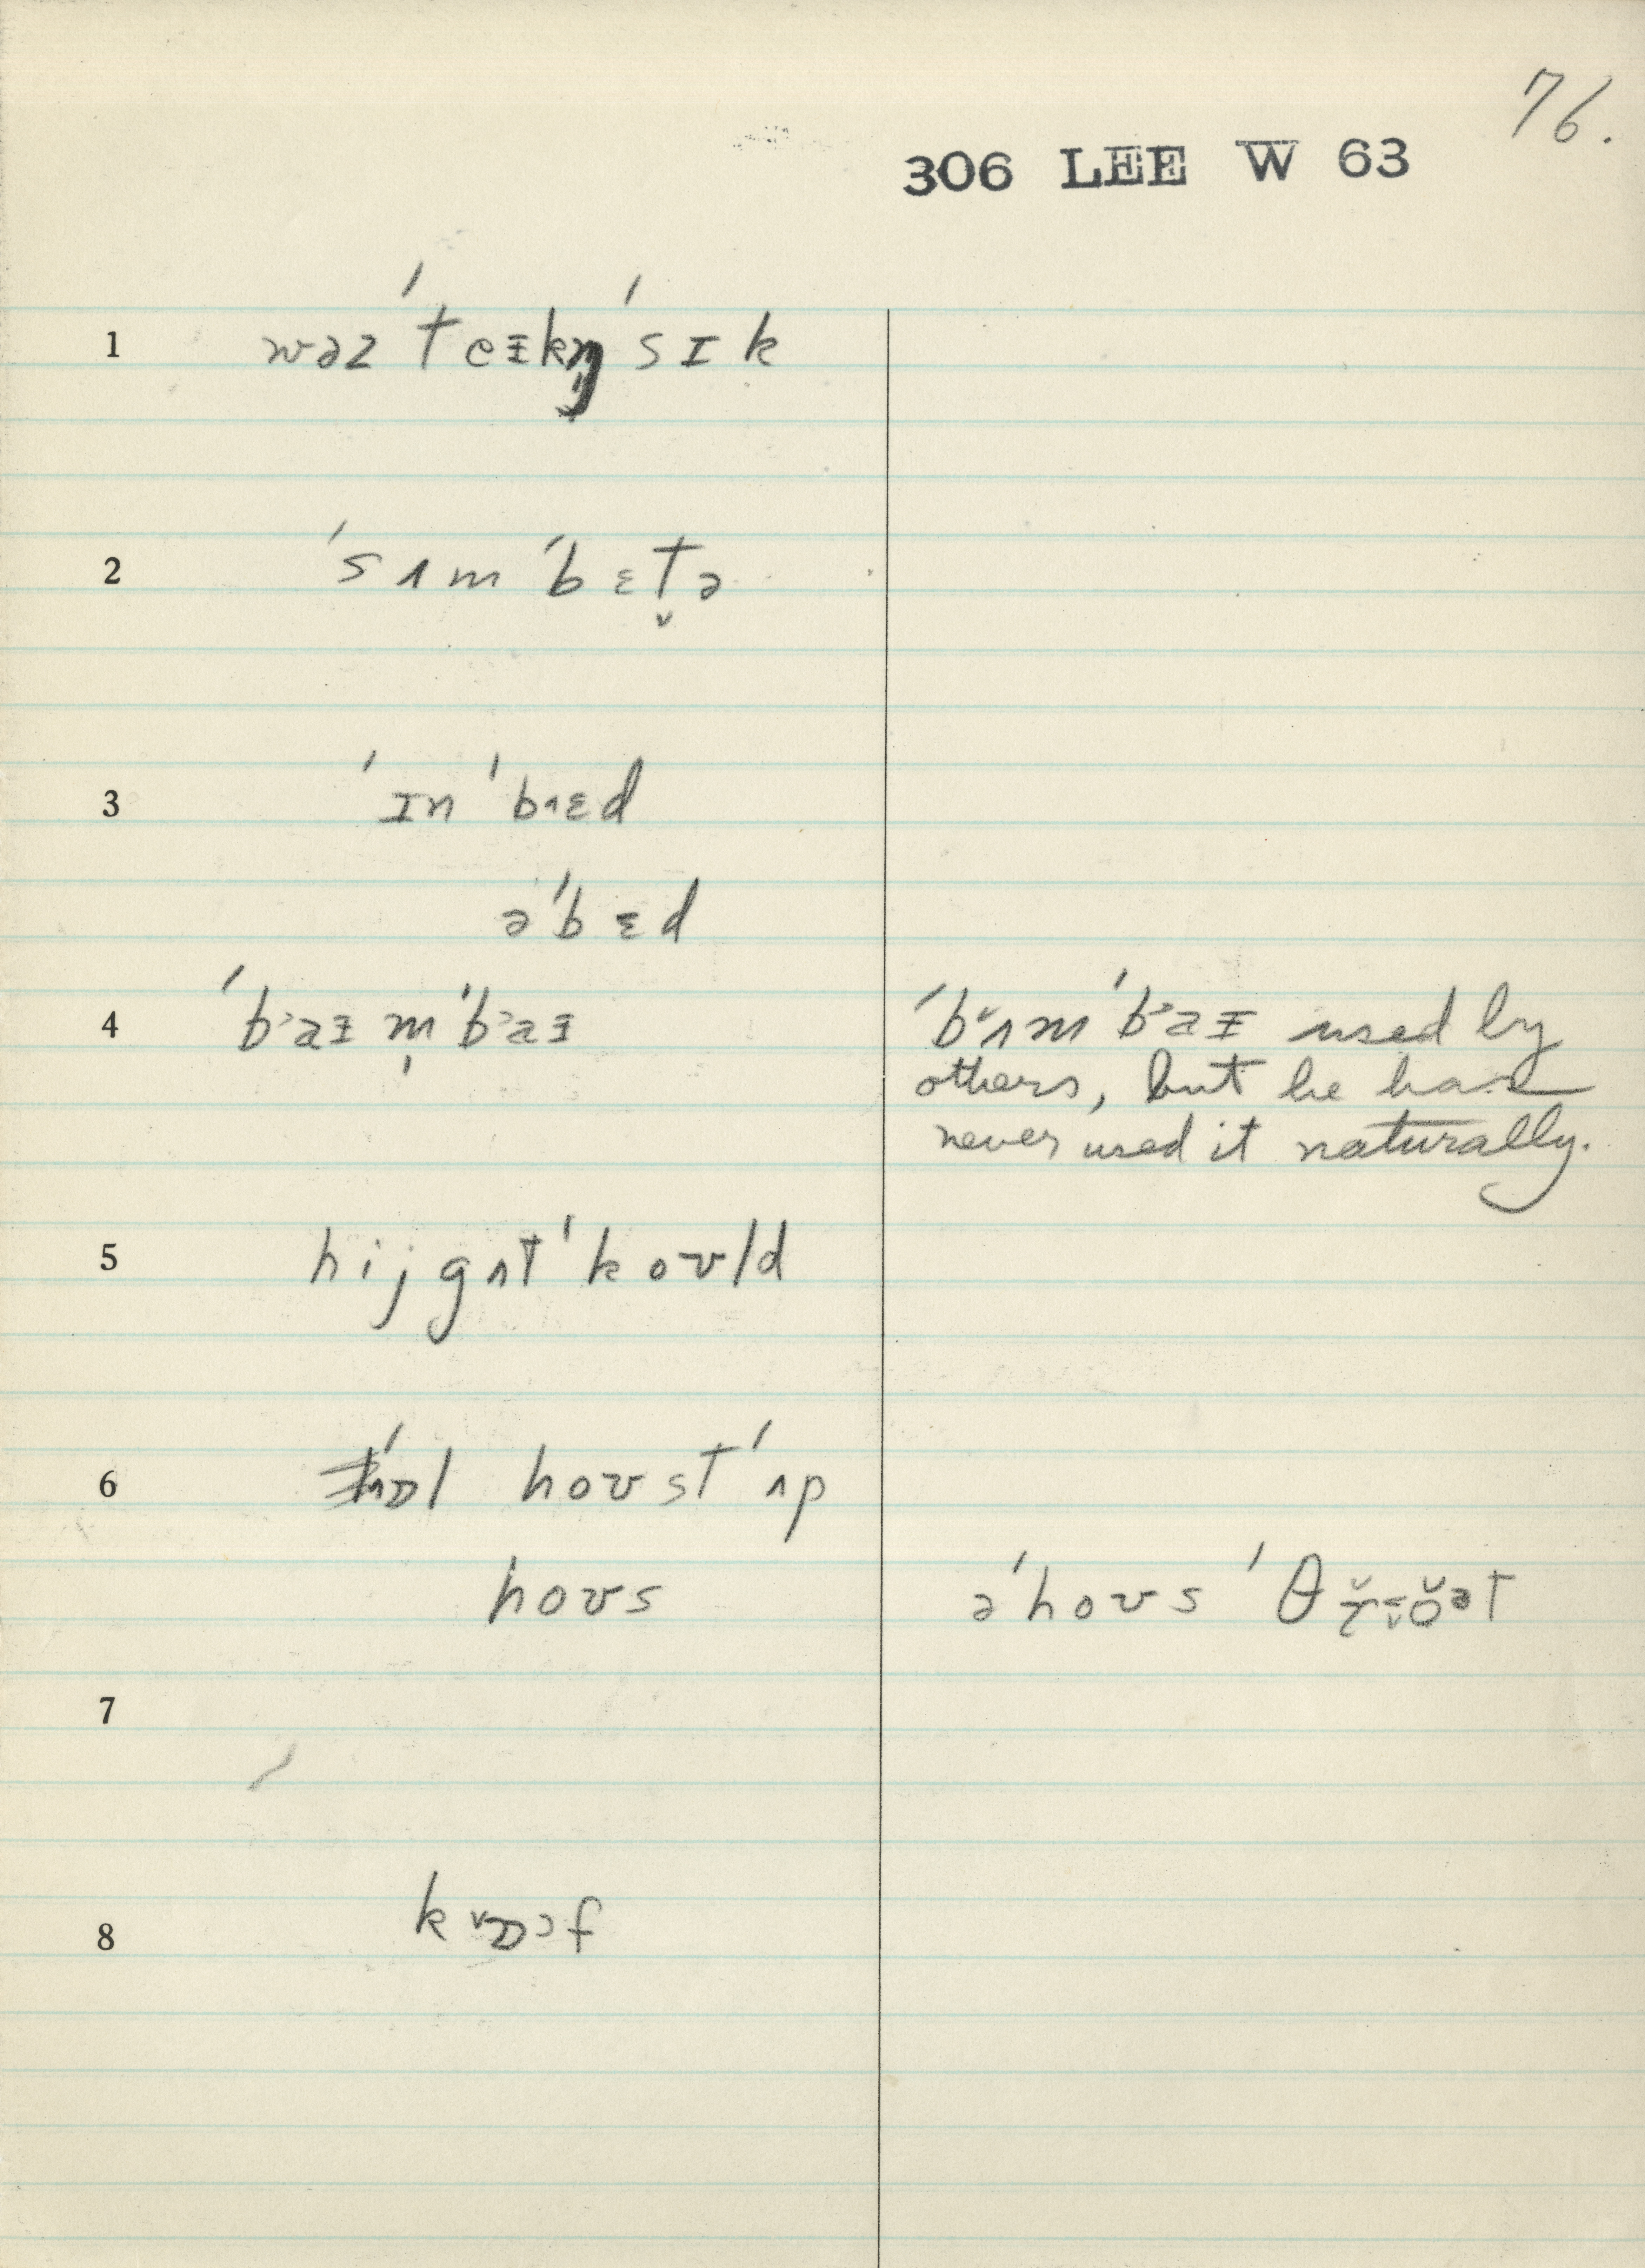 76.
306 LEE W 63
1 wəz ˈteɪkn̩ ˈsɪk
2 ˈsʌm ˈbɛt̬ə
3 ˈɪn ˈbɛd
ə ˈbɛd
4 ˈbaɪ m̩ ˈbaɪ
ˈbʌm ˈbaɪ used by
others, but he has
never used it naturally.
5 hij gʌt ˈkoʊld
6 hoʊst ˈʌp
hoʊs
ə ˈhoʊs
7
8